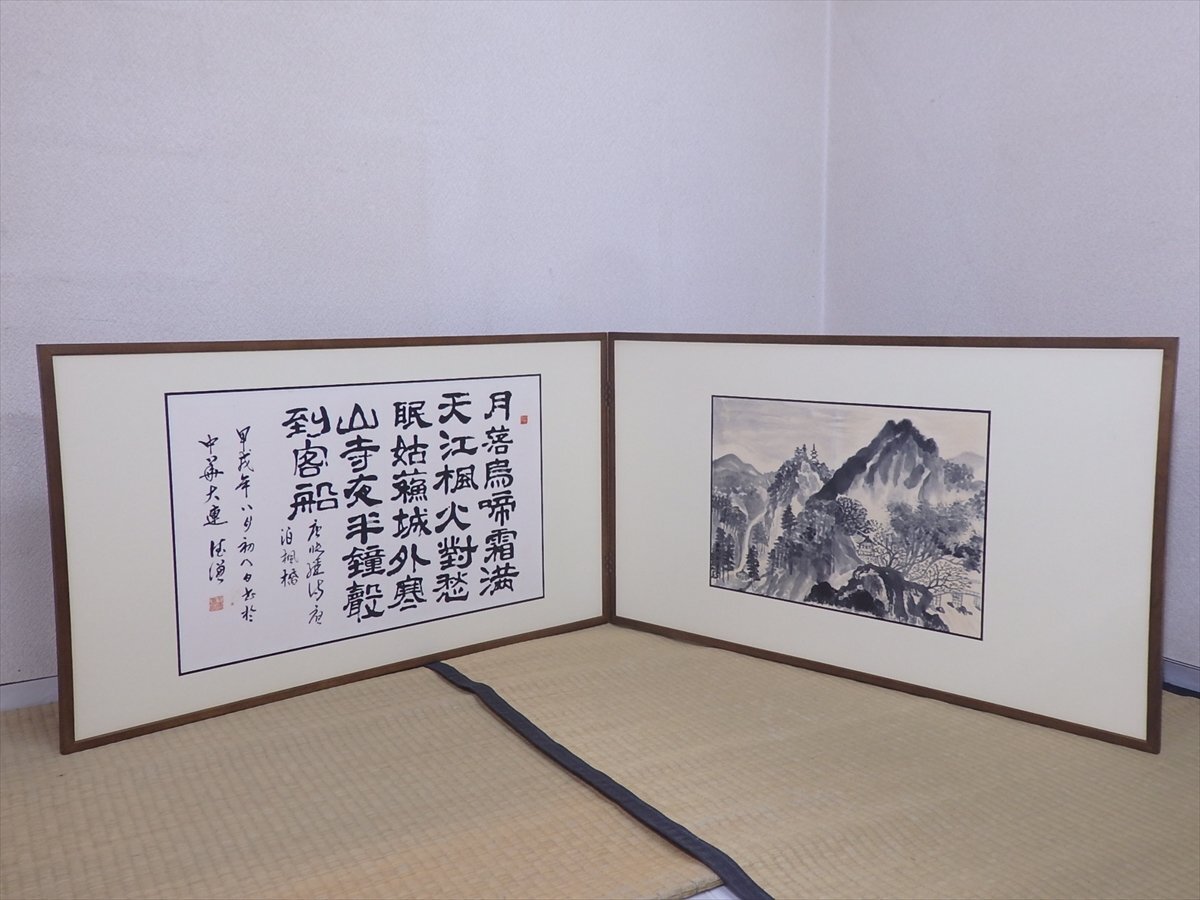 月落烏啼霜满
天江楓火對愁
眠姑蘓城外寒
山寺夜半鐘聲
到客船
泊楓橋
甲戌年八月初八日书於
中華大連